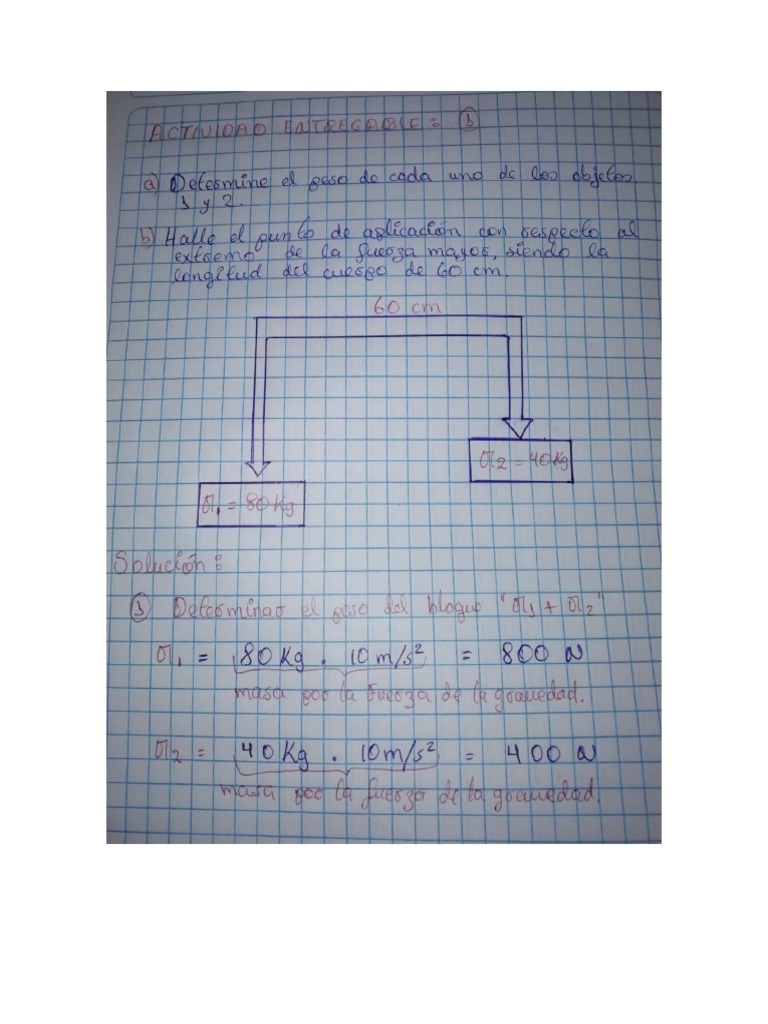 ACTIVIDAD ENTREGABLE: 1
a) Determine el peso de cada uno de los objetos
1 y 2.
b) Halle el punto de aplicación con respecto al
extremo de la fuerza mayor, siendo la
longitud del cuerpo de 60 cm.
60 cm
m2 = 40Kg
m1 = 80Kg
Solución:
1 Determinar el peso del bloque "m1 + m2"
m1 = 80Kg . 10m/s² = 800 N
masa por la fuerza de la gravedad.
m2 = 40Kg . 10m/s² = 400 N
masa por la fuerza de la gravedad.